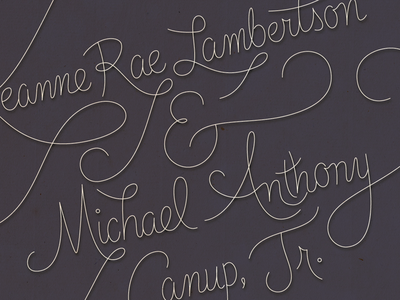 eanne Rae Lambertson
&
Michael Anthony
Canup, Jr.